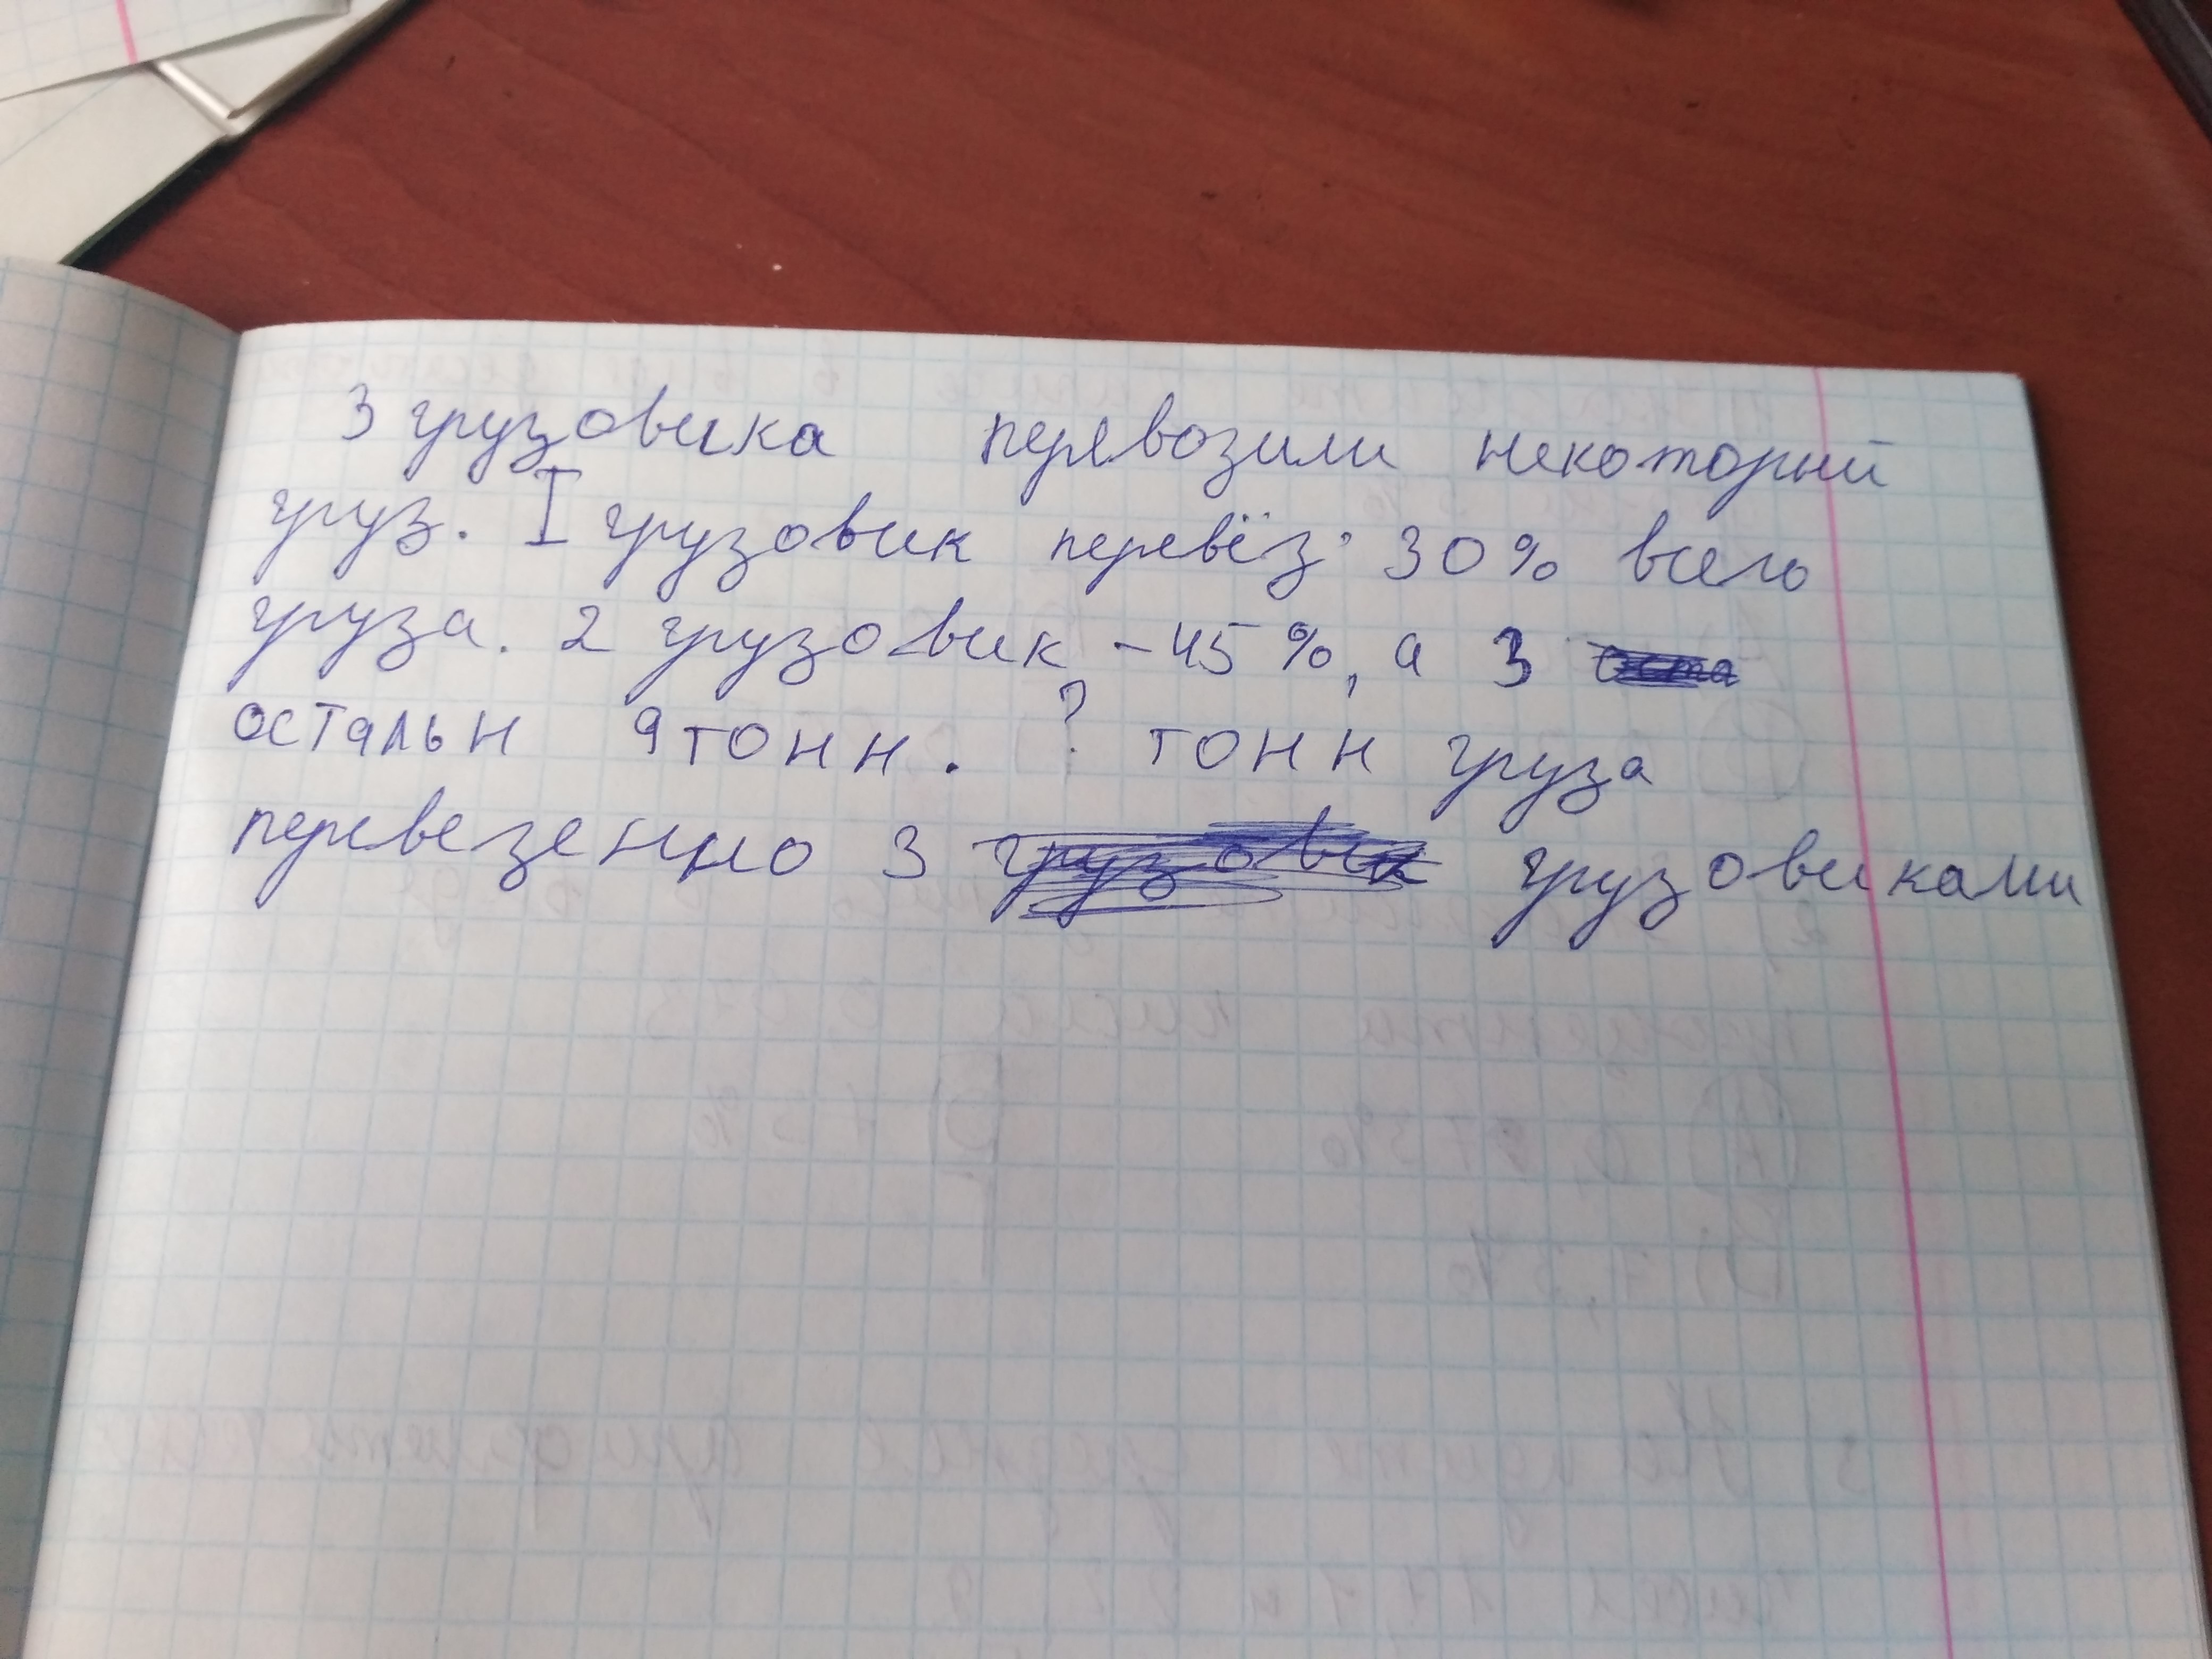 3 грузовика перявозили некоторий
груз. I грузовик перевёз 30% всего
груза. 2 грузовик - 45%, а 3
остальн 9 тонн. ? тонн груза
перевезенно 3 грузовиками